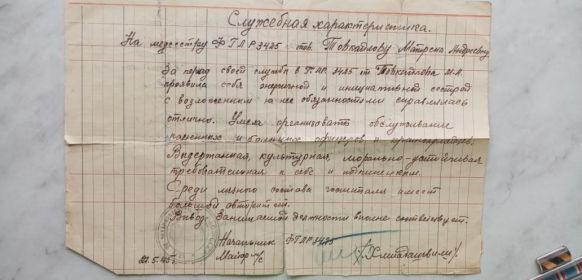 Служебная характеристика.
На медсестру ФГЛР 3425 тов. Товкайлову Матрену Андреевну
За период своей службы в ГЛР 3425 ст Товкайлова М.А.
проявила себя энергичной и инициативной сестрой
с возложенными на нее обязанностями справлялась
отлично. Умела организовать обслуживание
раненных и больных офицеров и
Выдержанная, культурная, морально-устойчивая
требовательная к себе и подчиненным.
Среди личного состава госпиталя имеет
большой авторитет.
Вывод: Занимаемой должности вполне соответствует.
Начальник ФГЛР 3425
Майор м/с
21.5.45г.